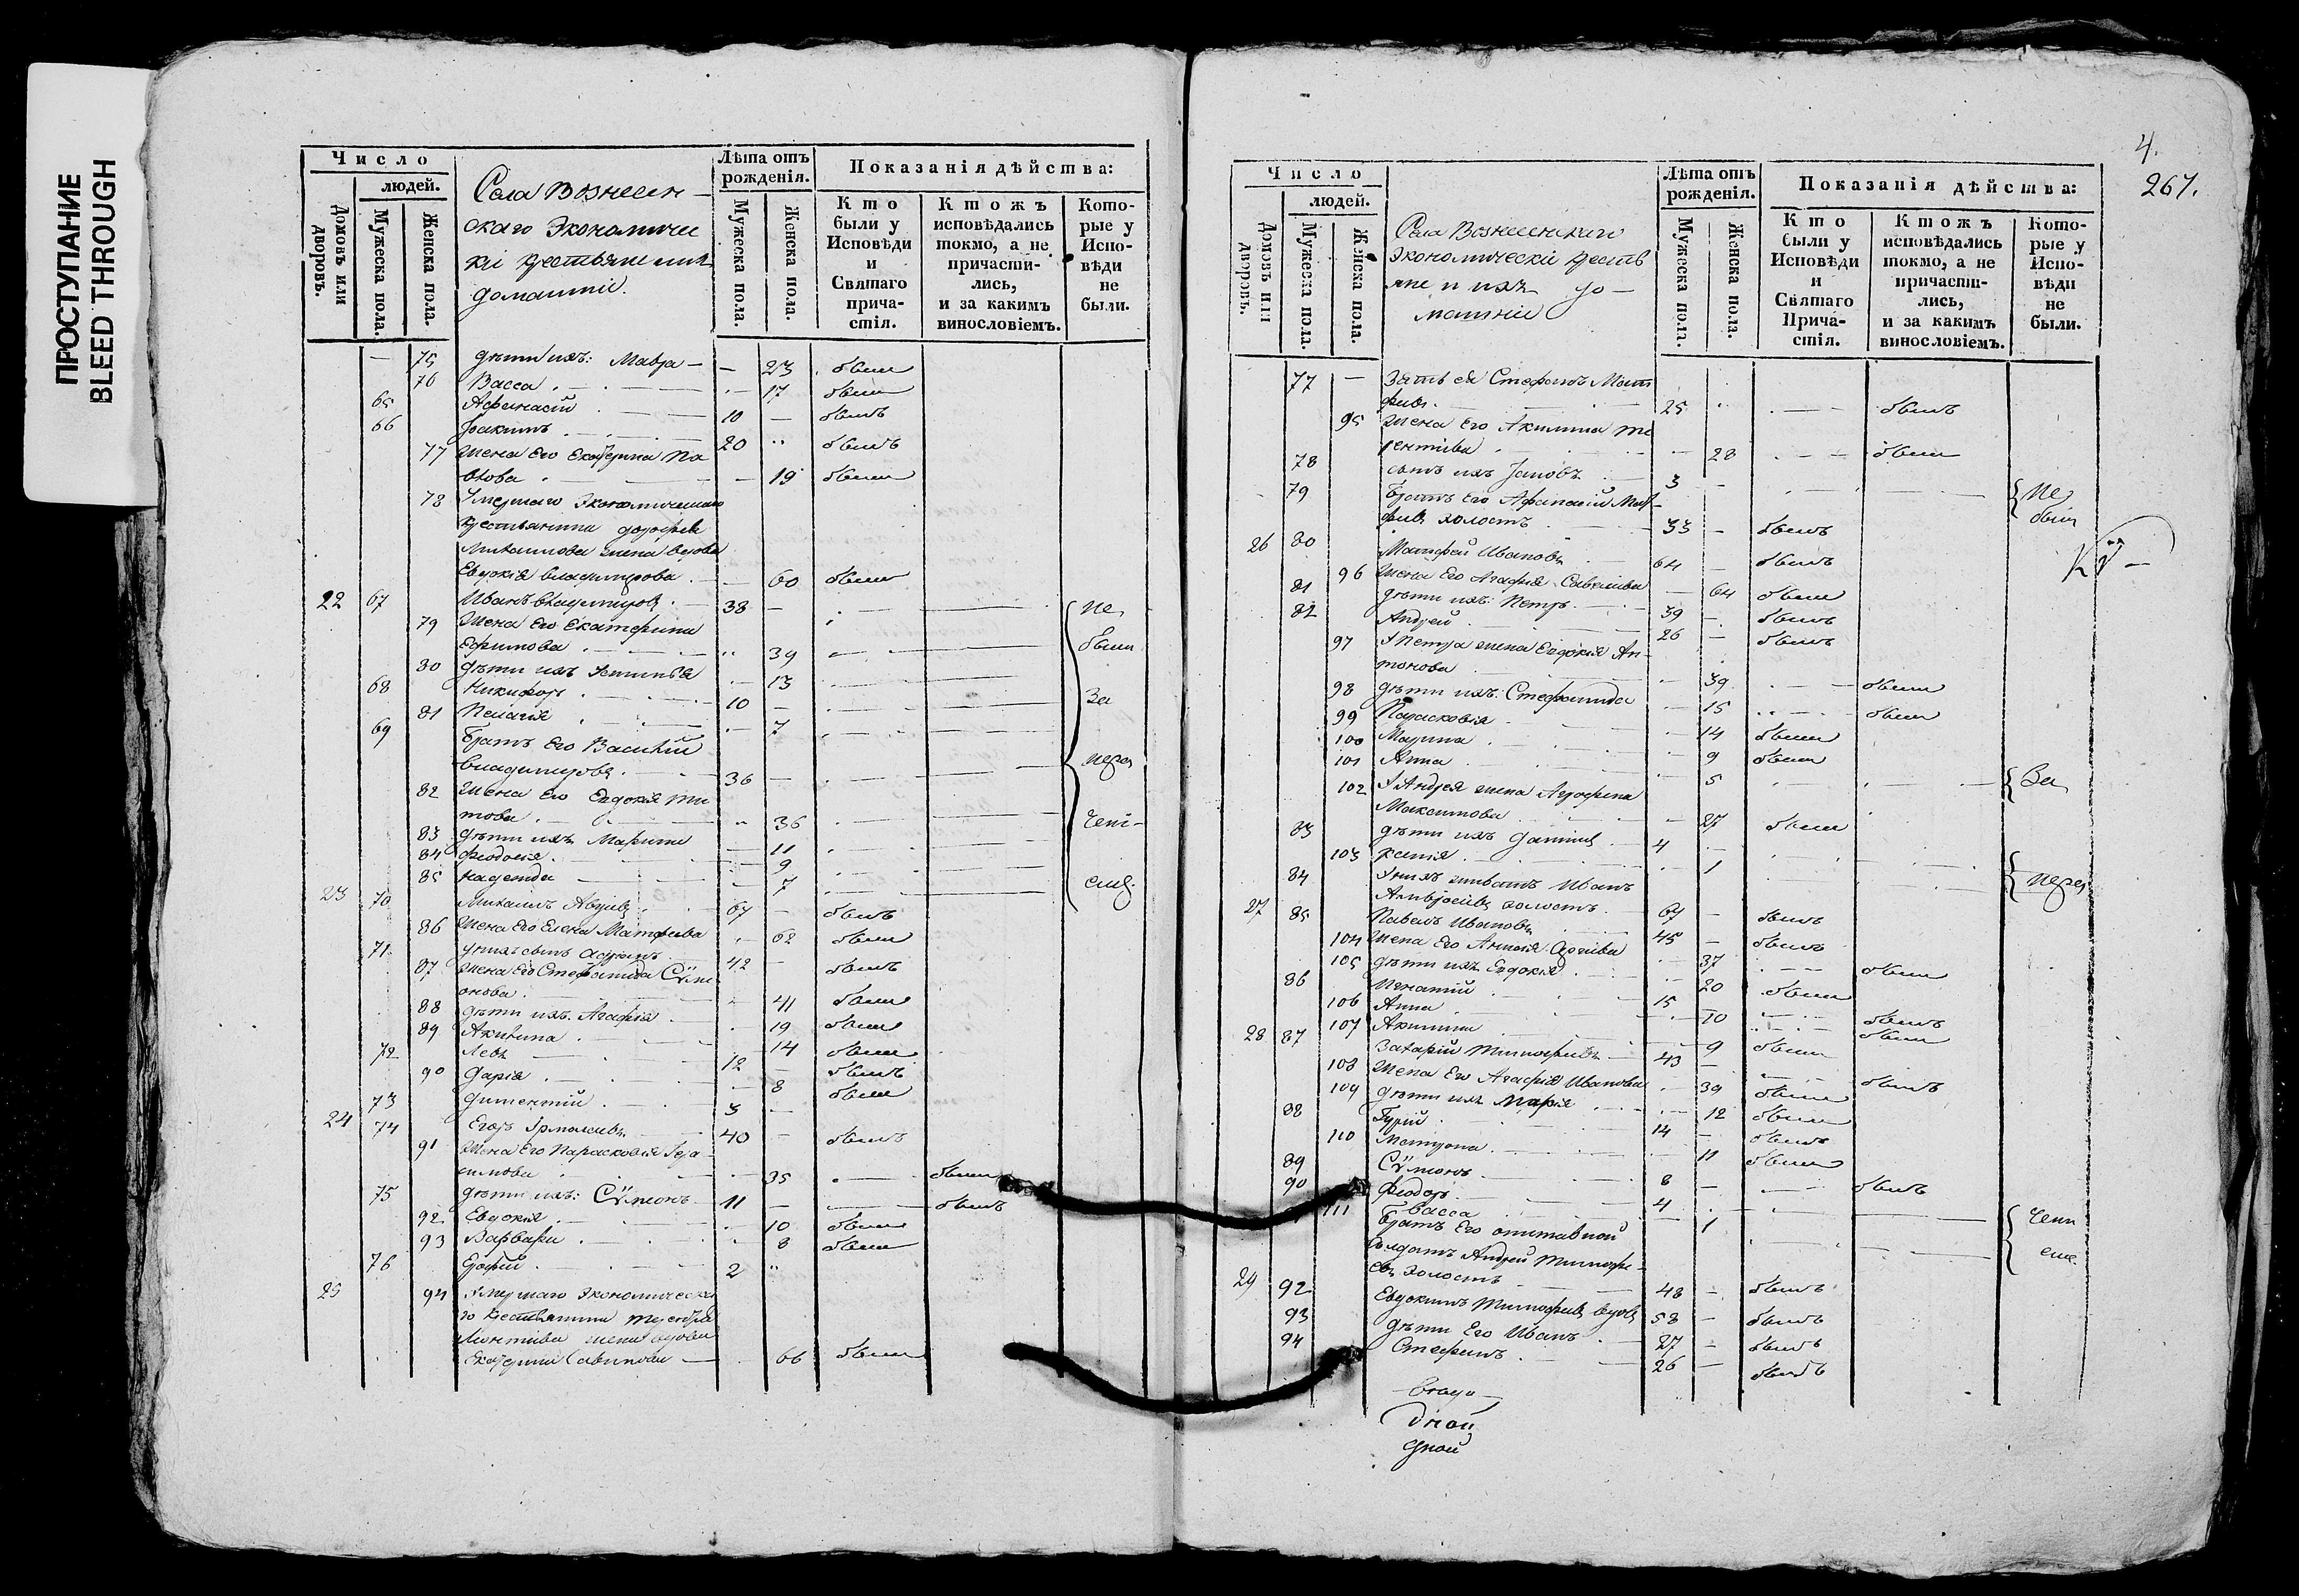 ПРОСТУПАНИЕ
BLEED THROUGH
Число
людей.
Домовъ или дворовъ.
Мужеска пола.
Женска пола.
Села Вознесен-
скаго Экономичес
кіе крестьяне и ихъ
домашніе.
Лѣта отъ рожденія.
Мужеска пола.
Женска пола.
Показанія дѣйства:
Кто были у Исповѣди и Святаго прича-стія.
Ктожъ исповѣдались токмо, а не причасти-лись, и за какимъ винословіемъ.
Кото-рые у Испо-вѣди не были.
— 75 дѣти ихъ: Мавра — — 23 были
76 Васса — 17 были
65 Афанасій 10 — былъ
66 Іоакимъ 20 " былъ
77 Жена Его Екатерина Па
влова — 19 были
78 Умершаго Экономическаго
крестьянина Дорофея
Михаилова жена вдова
Евдокія Владимірова — 60 были
22 67 Иванъ Владиміровъ 38 — не
79 Жена Его Екатерина
Ефимова " 39 были
80 дѣти ихъ Устинія — 13
68 Никифоръ 10 — За
81 Пелагія — 7
69 Братъ Его Василій
Владиміровъ 36 — нера
82 Жена Его Евдокія Ти
това " 36
83 дѣти ихъ Марина — 11 чені-
84 Феодосія 9
85 Надежда — 7 емъ.
23 70 Михаилъ 67 — былъ
86 Жена Его Елена Матфѣева 62 были
71 У нихъ сынъ 42 — былъ
87 Жена Его Стефанида Сѵм
онова 41 были
88 дѣти ихъ. Агафія 19 были
89 Акилина 14 были
72 Левъ 12 — былъ
90 Дарія — 8 были
73 Дементій 3 —
24 74 Егоръ Ермолаевъ 40 — былъ
91 Жена Его Парасковія Гера
симова 35 были
75 дѣти ихъ: Сѵмеонъ 11 — былъ
92 Евдокія 10 были
93 Варвара 8 были
76 2 "
25 94 Умершаго Экономическа
го крестьянина
жена вдова
Екатерина Савинова — 66 были
4.
267.
Число
людей.
Домовъ или дворовъ.
Мужеска пола.
Женска пола.
Села Вознесенскаго
Экономическіе кресть
яне и ихъ до-
машніе
Лѣта отъ рожденія.
Мужеска пола.
Женска пола.
Показанія дѣйства:
Кто были у Исповѣди и Святаго Прича-стія.
Ктожъ исповѣдались токмо, а не причасти-лись, и за какимъ винословіемъ.
Кото-рые у Испо-вѣди не были.
77 — Зять ея Стефанъ Мат
фѣевъ 25 былъ
95 Жена Его Акилина Те
рентіева — 28 были
78 сынъ ихъ Іаковъ 3 — не
79 Братъ Его Афанасій Мат-
фѣевъ холостъ 33 — былъ были
26 80 Матфей Ивановъ 64 — былъ
96 Жена Его Агафія Савельива — 64 были
81 дѣти ихъ: Петръ 39 — былъ
82 Андрей 26 — былъ
97 У Петра жена Евдокія Ан-
тонова — 39 были
98 дѣти ихъ: Стефанида — 15 были
99 Парасковія 14 были
100 Марина 9 были
101 Анна 5 За
102 У Андрея жена Агрофена
Максимова — 27 были
83 дѣти ихъ Даніилъ 4 —
103 Ксенія 1 нера
84 У нихъ Иванъ
Амвросіевъ холостъ 67 — былъ
27 85 Павелъ Ивановъ 45 — былъ
104 Жена Его 37 были
105 дѣти ихъ Евдокія 20 были
86 Игнатій 15 былъ
106 Анна 10 были
107 Акилина 9 были
28 87 Захарій Тимофѣевъ 43 — былъ
108 Жена Его Агафія Иванова 39 были
109 дѣти ихъ Марія 12 были
88 Гурій 14 — былъ
110 Матрона 11 были
89 Сѵмеонъ 8 — былъ
90 Феодоръ 4
111 Васса 1 чені
Братъ Его отставной
солдатъ Андрей Тимофе- емъ
евъ холостъ 48 — былъ
29 92 Евдокимъ Тимофѣевъ вдовъ 58 — былъ
93 дѣти Его Иванъ 27 — былъ
94 Стефанъ 26 — былъ